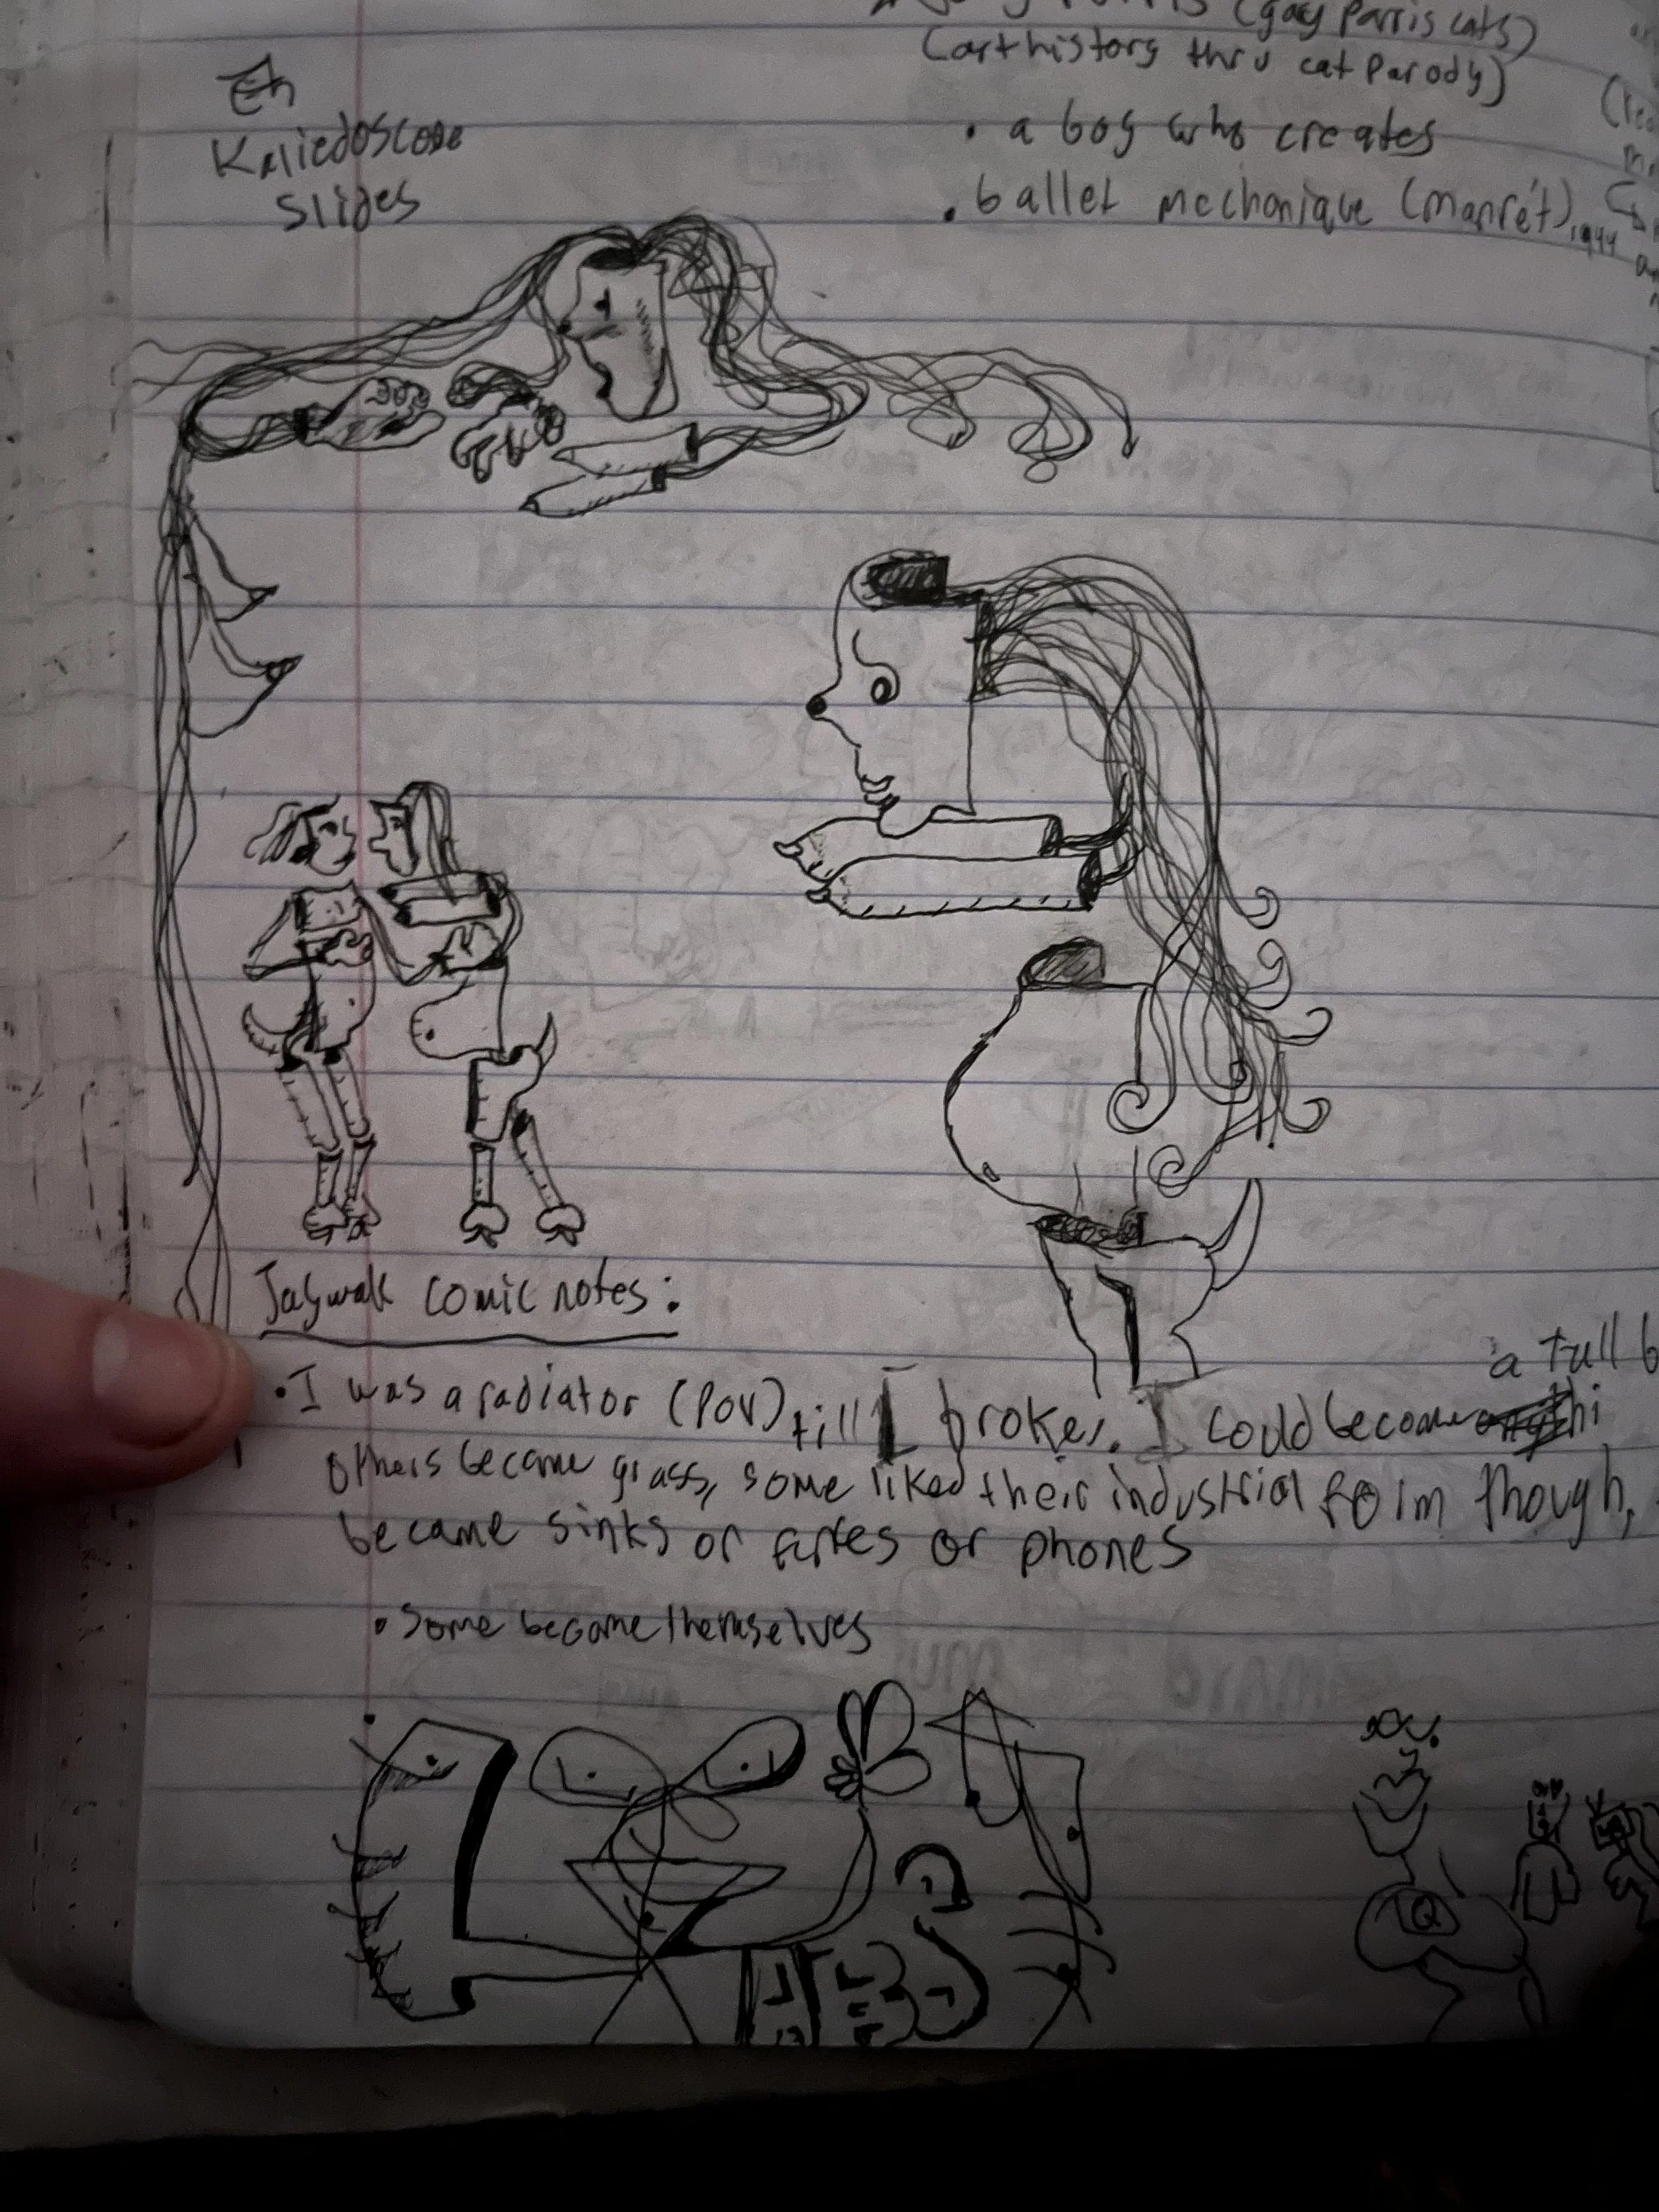 (gay Parris cats)
(art history thru cat parody)
• a boy who creates
• ballet mechanique (manrét), 1944
Kaliedoscope
Slides
Jaywalk comic notes:
• I was a radiator (POV) till I broke. I could become
a full b
others became grass, some liked their industrial form though,
became sinks or or phones
• Some became themselves